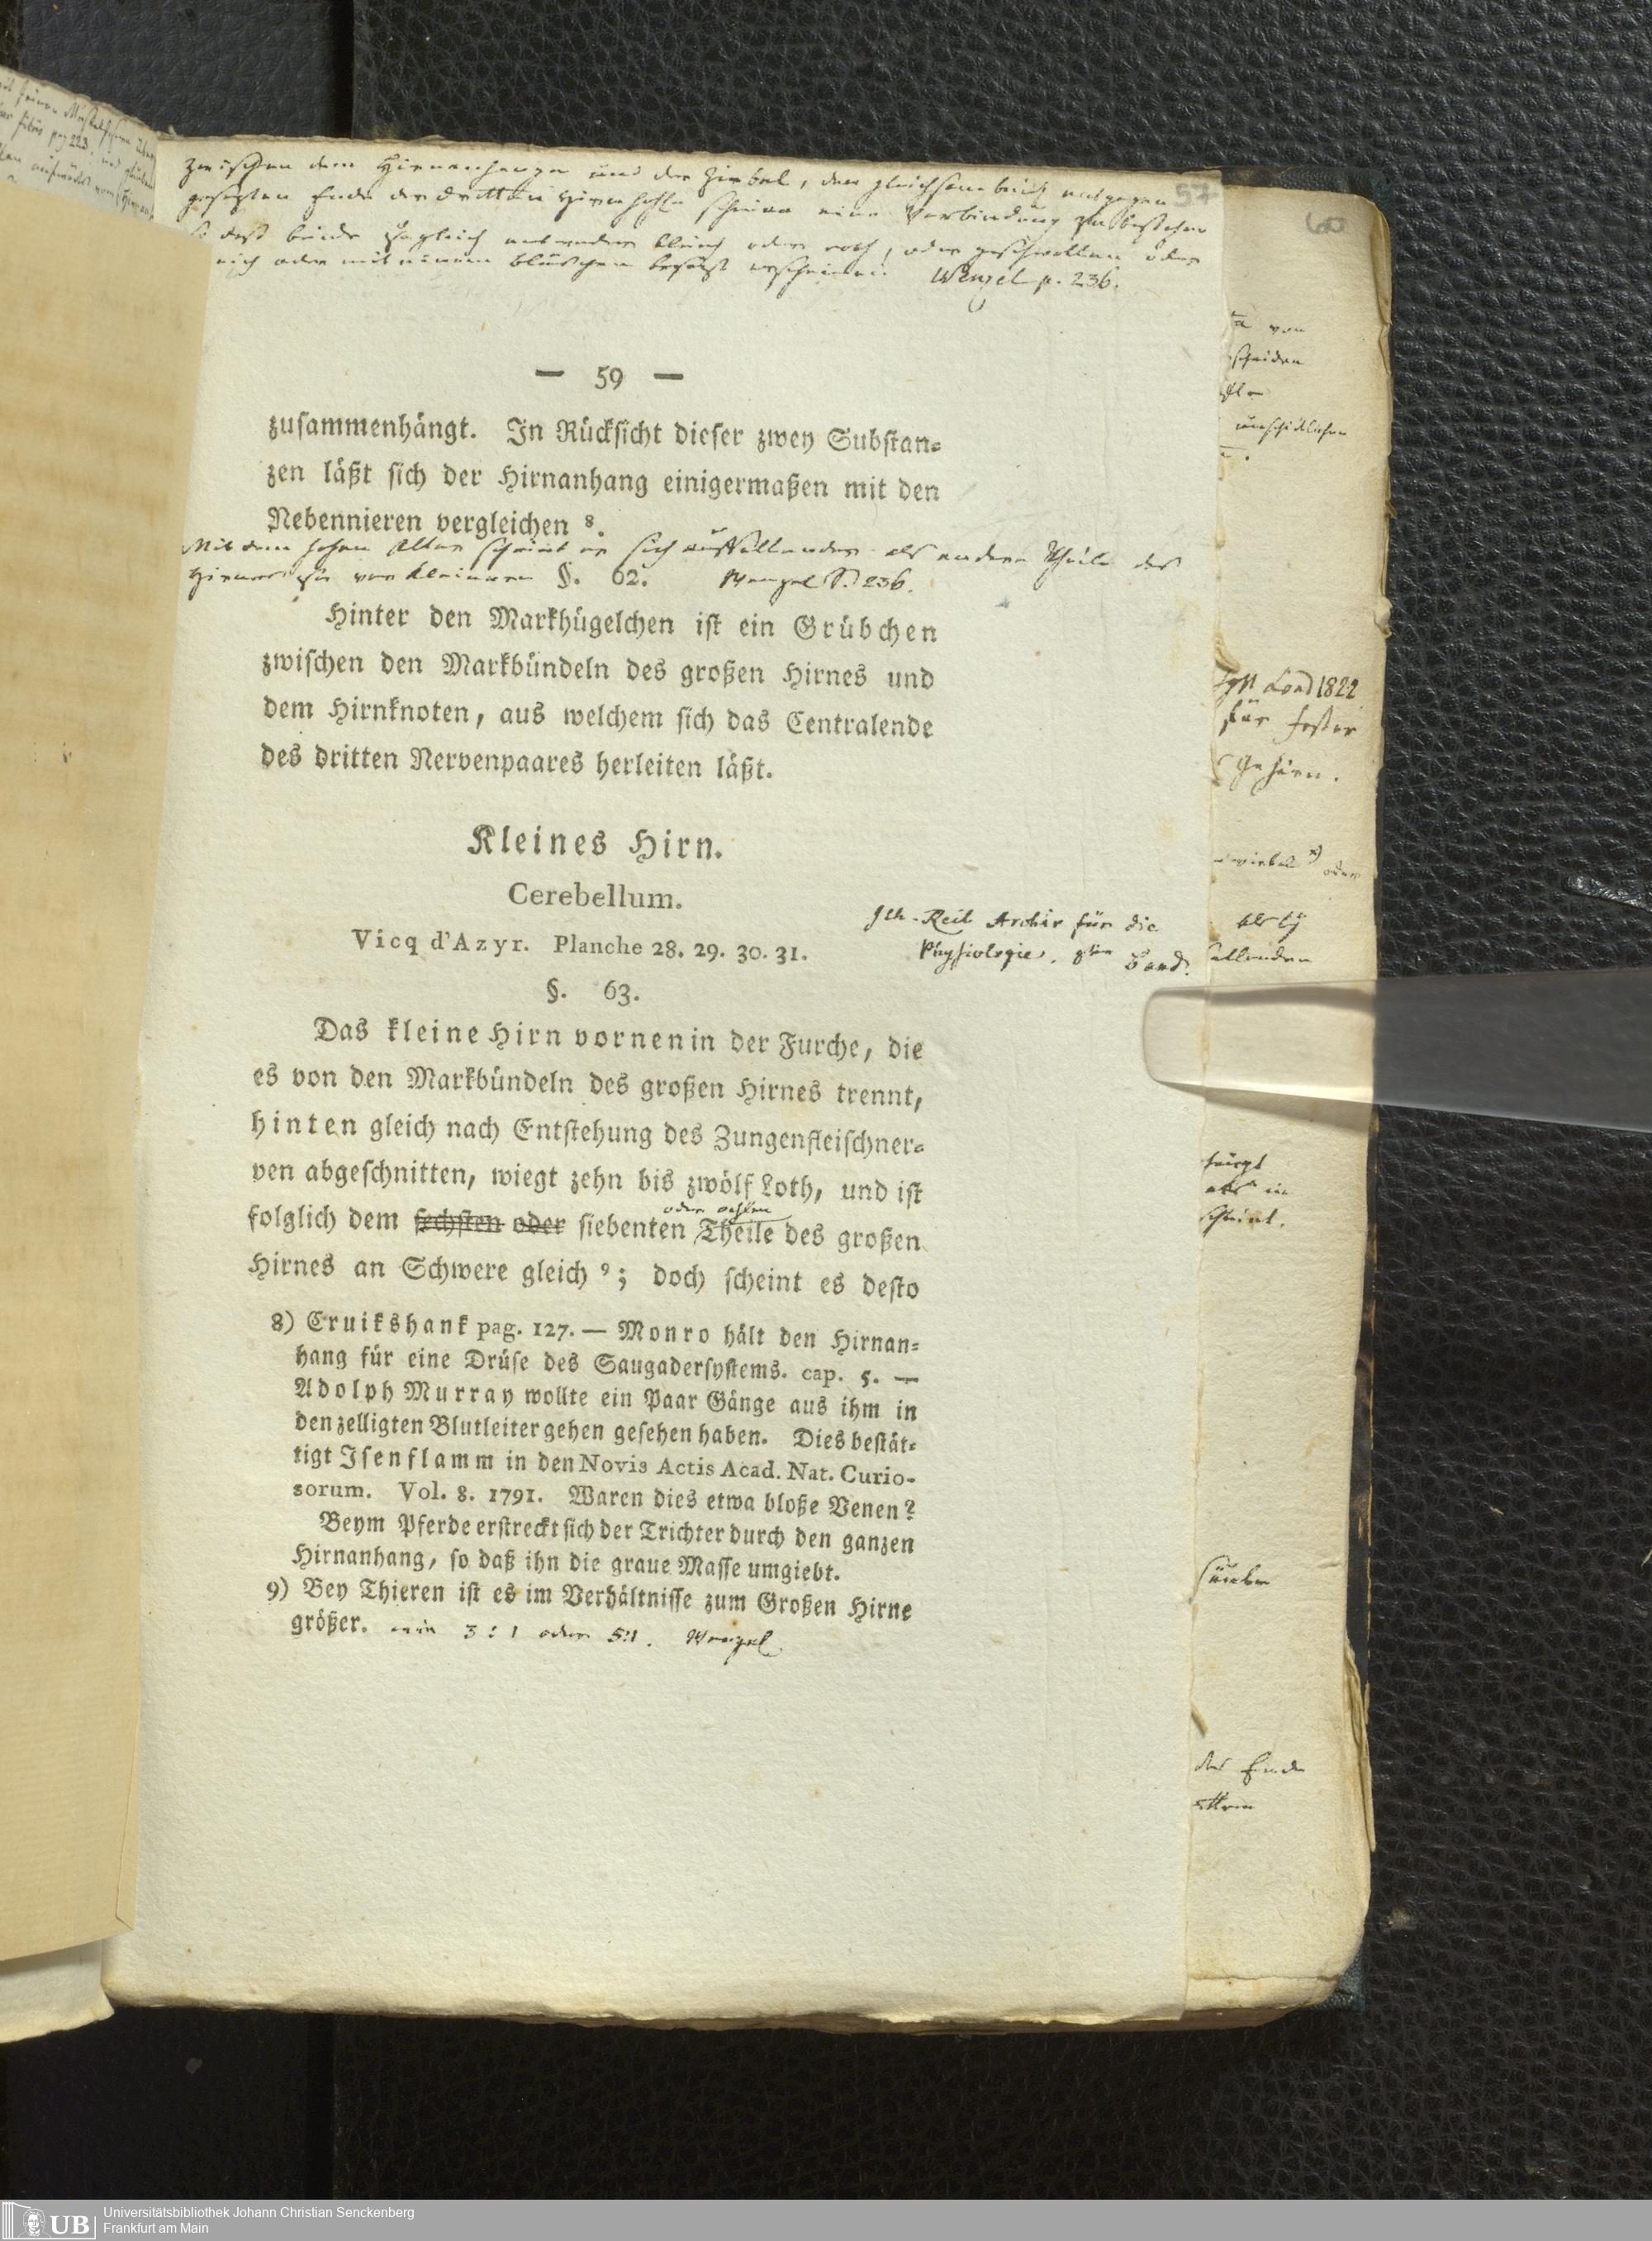 zwischen dem Hirnanhange und der Zirbel, den gleichsam beide entgegen
gesezten Ende der dritten Hirnhöhle scheint eine Verbindung zu bestehen
so daß beide zugleich entweder bleich oder roth, oder geschwollen oder
mit einem Bläschen besezt erscheinen. Wenzel p. 236.
57
60
— 59 —
zuſammenhängt. In Rückſicht dieſer zwey Subſtan=
zen läßt ſich der Hirnanhang einigermaßen mit den
Nebennieren vergleichen ⁸.
Mit dem hohen Alter scheint er sich auffallender als andere Theile des
Hirnes zu verkleinern §. 62. Wenzel S. 236.
Hinter den Markhügelchen iſt ein Grübchen
zwiſchen den Markbündeln des großen Hirnes und
dem Hirnknoten, aus welchem ſich das Centralende
des dritten Nervenpaares herleiten läßt.
Kleines Hirn.
Cerebellum.
Vicq d'Azyr. Planche 28. 29. 30. 31.
Reil Archiv für die
Physiologie. Band.
§. 63.
Das kleine Hirn vornen in der Furche, die
es von den Markbündeln des großen Hirnes trennt,
hinten gleich nach Entſtehung des Zungenfleiſchner=
ven abgeſchnitten, wiegt zehn bis zwölf Loth, und iſt
oder achten
folglich dem ſechsten oder ſiebenten Theile des großen
Hirnes an Schwere gleich ⁹; doch ſcheint es deſto
8) Cruikshank pag. 127. — Monro hält den Hirnan=
hang für eine Drüſe des Saugaderſyſtems. cap. 5. —
Adolph Murray wollte ein Paar Gänge aus ihm in
den zelligten Blutleiter gehen geſehen haben. Dies beſtät=
tigt Iſenflamm in den Novis Actis Acad. Nat. Curio-
sorum. Vol. 8. 1791. Waren dies etwa bloße Venen?
Beym Pferde erſtreckt ſich der Trichter durch den ganzen
Hirnanhang, ſo daß ihn die graue Maſſe umgiebt.
9) Bey Thieren iſt es im Verhältniſſe zum Großen Hirne
größer. wie 3:1 oder 5:1. Wenzel.
Lond 1822
Gehirn.
das Ende
UB Universitätsbibliothek Johann Christian Senckenberg
Frankfurt am Main